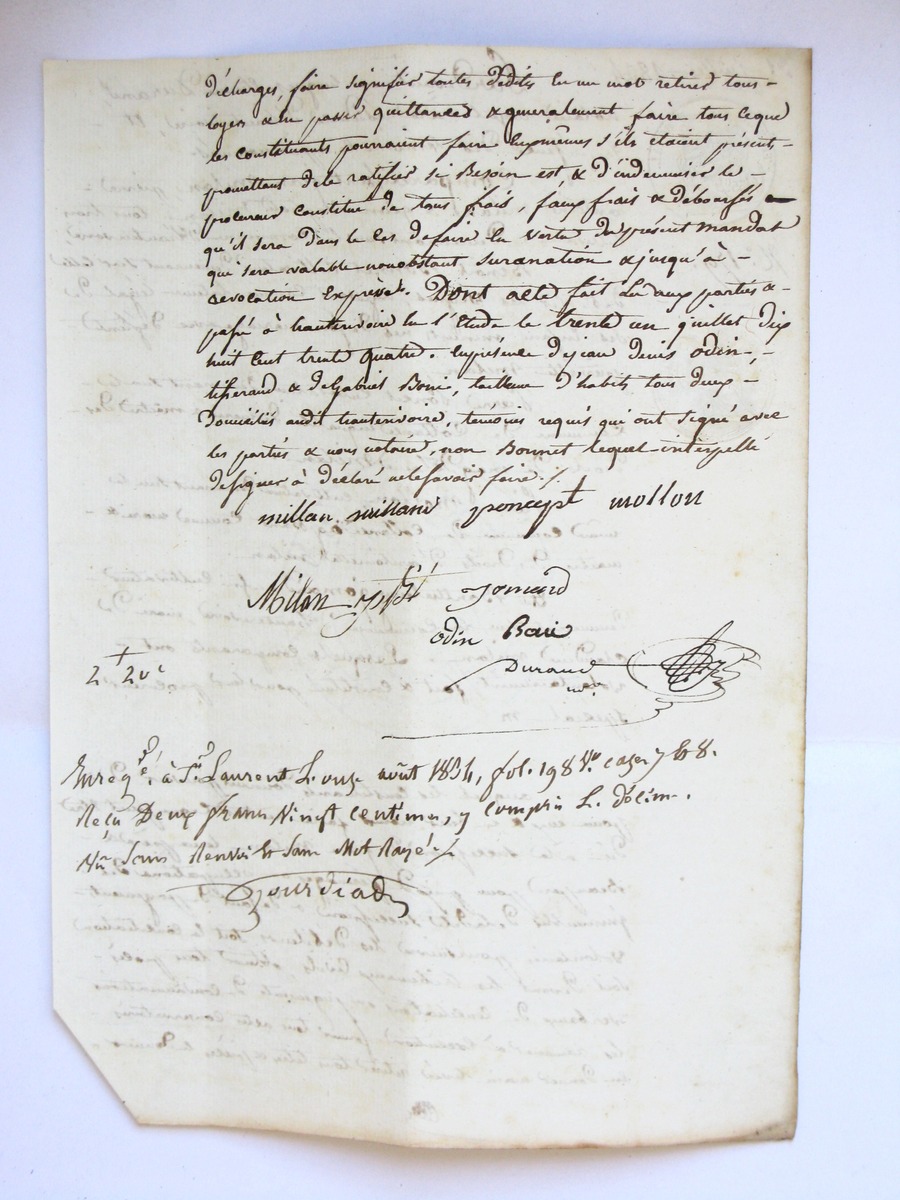 décharges, faire signifier toutes dédites en un mot retirer tous
loyers & en passer quittances & generalement faire tous ceque
les constituants pourraient faire euxmêmes s'ils etaient présents
promettant dele ratifier si Besoin est & d'indemniser le
procureur constitué de tous frais, faux frais & déboursés
qu'il sera dans le cas defaire en vertu duprésent mandat
qui sera valable nonobstant surannation & jusqu'à
revocation expresse. Dont acte fait lu aux parties &
passé à hauterivoire en l'Etude le trente un juillet dix
huit cent trente quatre. enprésence dejean denis odin,
tisserand & deGabriel Boni, tailleur d'habits tous deux
Domiciliés audit hauterivoire, témoins requis qui ont signé avec
les parties & nous notaire, non Bonnet lequel interpellé
designer à déclaré nelesavoir faire ./.
millan millan poncept mollon
Milan jomard
odin Boni
Durand
2 20c
Enregé. à St Laurent L. onze août 1834, fol. 198 Vo case 7 et 8.
Reçu Deux francs Vingt centimes, y compris L. décime.
Sans Renvoi et sans Mot Rayé ./.